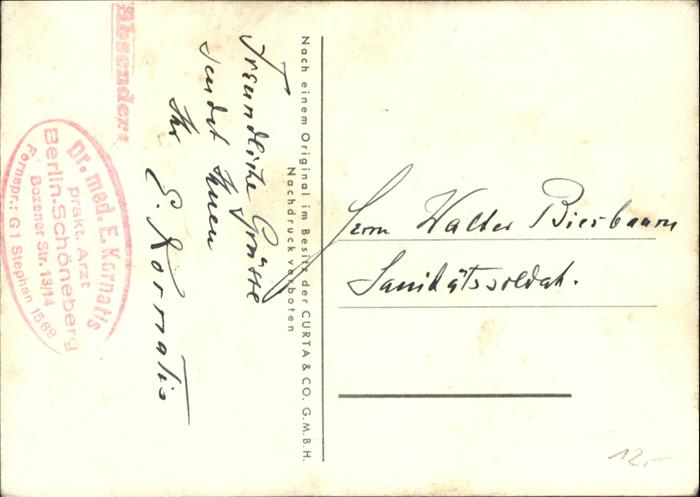 Absender:
Dr. med. E. Kornatis
prakt. Arzt
Berlin-Schöneberg
Bozener Str. 13/14
Fernspr.: G1 Stephan 1569
Freundliche Grüsse
sendet Ihnen
Ihr
E. Kornatis
Nach einem Original im Besitz der CURTA & CO. G.M.B.H.
Nachdruck verboten
Herrn Walter Bierbaum
Sanitätssoldat.
12,-